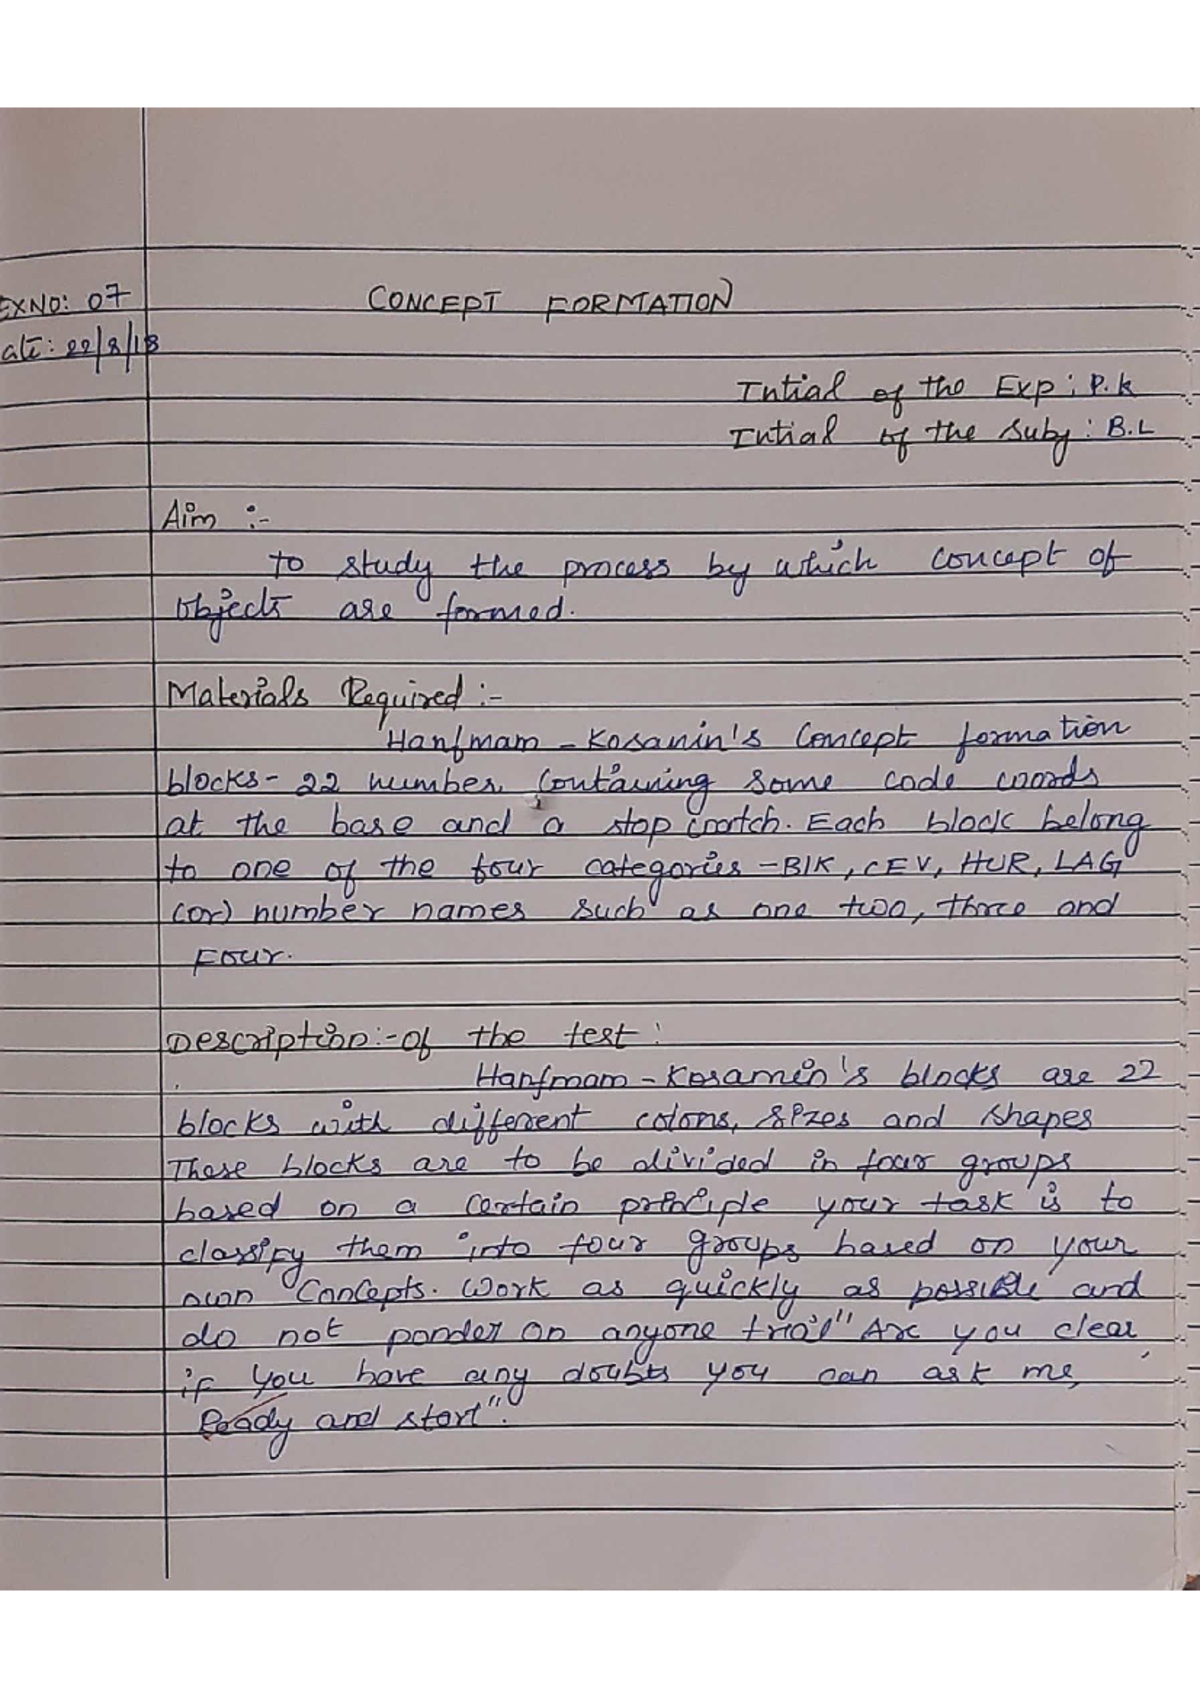 EXNO: 07
CONCEPT FORMATION
ate: 22/8/18
Intial of the Exp: P.K
Intial of the Suby: B.L
Aim :-
To study the process by which concept of
objects are formed.
Materials Required :-
Hanfmam - Kosanin's Concept formation
blocks - 22 number. Containing some code words
at the base and a stop watch. Each block belong
to one of the four categories - BIK, CEV, HUR, LAG
(or) number names such as one two, three and
Four.
Description:- of the test :
Hanfmam - Kosamein's blocks are 22
blocks with different colons, sizes and shapes
These blocks are to be divided in four groups
based on a certain principle your task is to
classify them into four groups based on your
own Concepts. Work as quickly as possible and
do not ponder on anyone trial" Are you clear,
if you have any doubts you can ask me,
Ready and start".